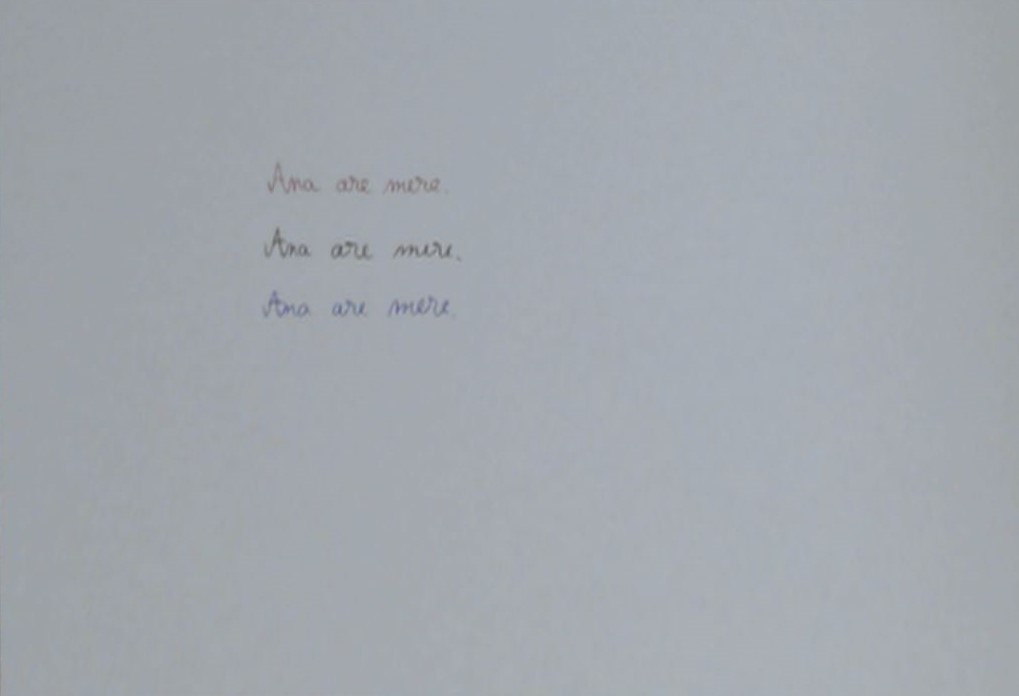 Ana are mere.
Ana are mere.
Ana are mere.